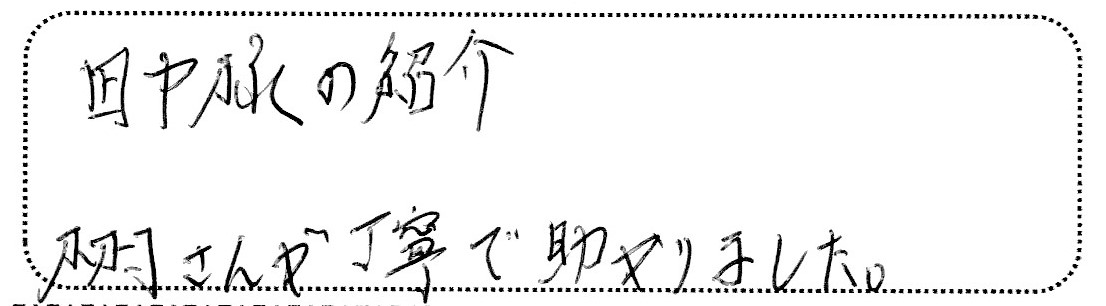 田中様の紹介
さんが丁寧で助かりました。